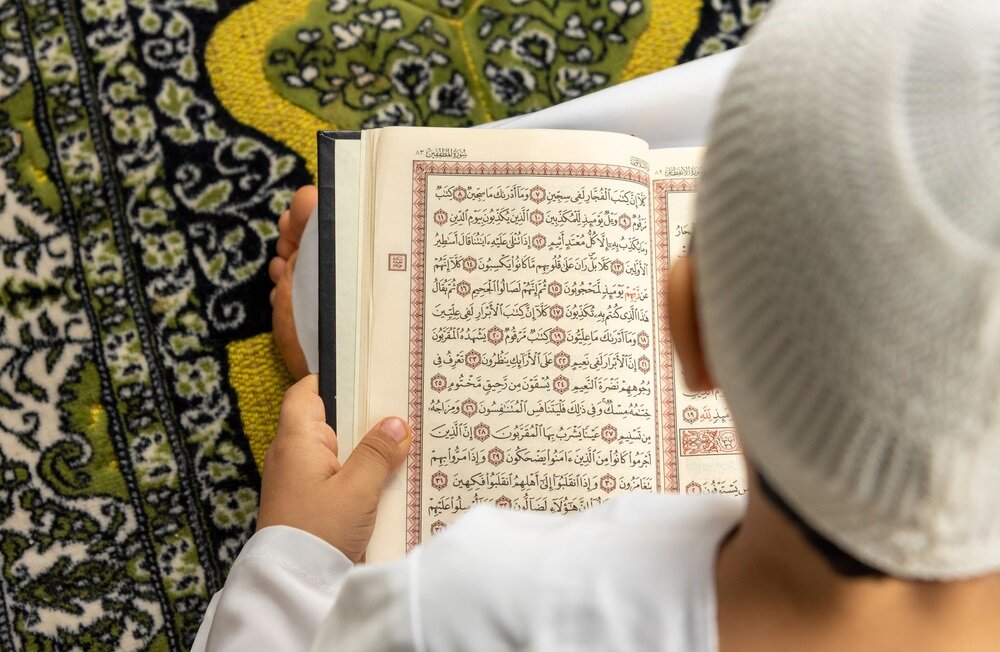 سُورَةُ المُطَفِّفِينَ ٨٣
كَلَّآ إِنَّ كِتَٰبَ ٱلْفُجَّارِ لَفِى سِجِّينٍ ٧ وَمَآ أَدْرَىٰكَ مَا سِجِّينٌ ٨ كِتَٰبٌ
مَّرْقُومٌ ٩ وَيْلٌ يَوْمَئِذٍ لِّلْمُكَذِّبِينَ ١٠ ٱلَّذِينَ يُكَذِّبُونَ بِيَوْمِ ٱلدِّينِ ١١
وَمَا يُكَذِّبُ بِهِۦٓ إِلَّا كُلُّ مُعْتَدٍ أَثِيمٍ ١٢ إِذَا تُتْلَىٰ عَلَيْهِ ءَايَٰتُنَا قَالَ أَسَٰطِيرُ
ٱلْأَوَّلِينَ ١٣ كَلَّا بَلْ رَانَ عَلَىٰ قُلُوبِهِم مَّا كَانُوا۟ يَكْسِبُونَ ١٤ كَلَّآ إِنَّهُمْ
عَن رَّبِّهِمْ يَوْمَئِذٍ لَّمَحْجُوبُونَ ١٥ ثُمَّ إِنَّهُمْ لَصَالُوا۟ ٱلْجَحِيمِ ١٦ ثُمَّ يُقَالُ
هَٰذَا ٱلَّذِى كُنتُم بِهِۦ تُكَذِّبُونَ ١٧ كَلَّآ إِنَّ كِتَٰبَ ٱلْأَبْرَارِ لَفِى عِلِّيِّينَ
١٨ وَمَآ أَدْرَىٰكَ مَا عِلِّيُّونَ ١٩ كِتَٰبٌ مَّرْقُومٌ ٢٠ يَشْهَدُهُ ٱلْمُقَرَّبُونَ
٢١ إِنَّ ٱلْأَبْرَارَ لَفِى نَعِيمٍ ٢٢ عَلَى ٱلْأَرَآئِكِ يَنظُرُونَ ٢٣ تَعْرِفُ فِى
وُجُوهِهِمْ نَضْرَةَ ٱلنَّعِيمِ ٢٤ يُسْقَوْنَ مِن رَّحِيقٍ مَّخْتُومٍ ٢٥
خِتَٰمُهُۥ مِسْكٌ وَفِى ذَٰلِكَ فَلْيَتَنَافَسِ ٱلْمُتَنَٰفِسُونَ ٢٦ وَمِزَاجُهُۥ
مِن تَسْنِيمٍ ٢٧ عَيْنًا يَشْرَبُ بِهَا ٱلْمُقَرَّبُونَ ٢٨ إِنَّ ٱلَّذِينَ
أَجْرَمُوا۟ كَانُوا۟ مِنَ ٱلَّذِينَ ءَامَنُوا۟ يَضْحَكُونَ ٢٩ وَإِذَا مَرُّوا۟ بِهِمْ
يَتَغَامَزُونَ ٣٠ وَإِذَا ٱنقَلَبُوٓا۟ إِلَىٰٓ أَهْلِهِمُ ٱنقَلَبُوا۟ فَكِهِينَ ٣١
هَٰٓؤُلَآءِ لَضَآلُّونَ ٣٢ أُرْسِلُوا۟ عَلَيْهِمْ